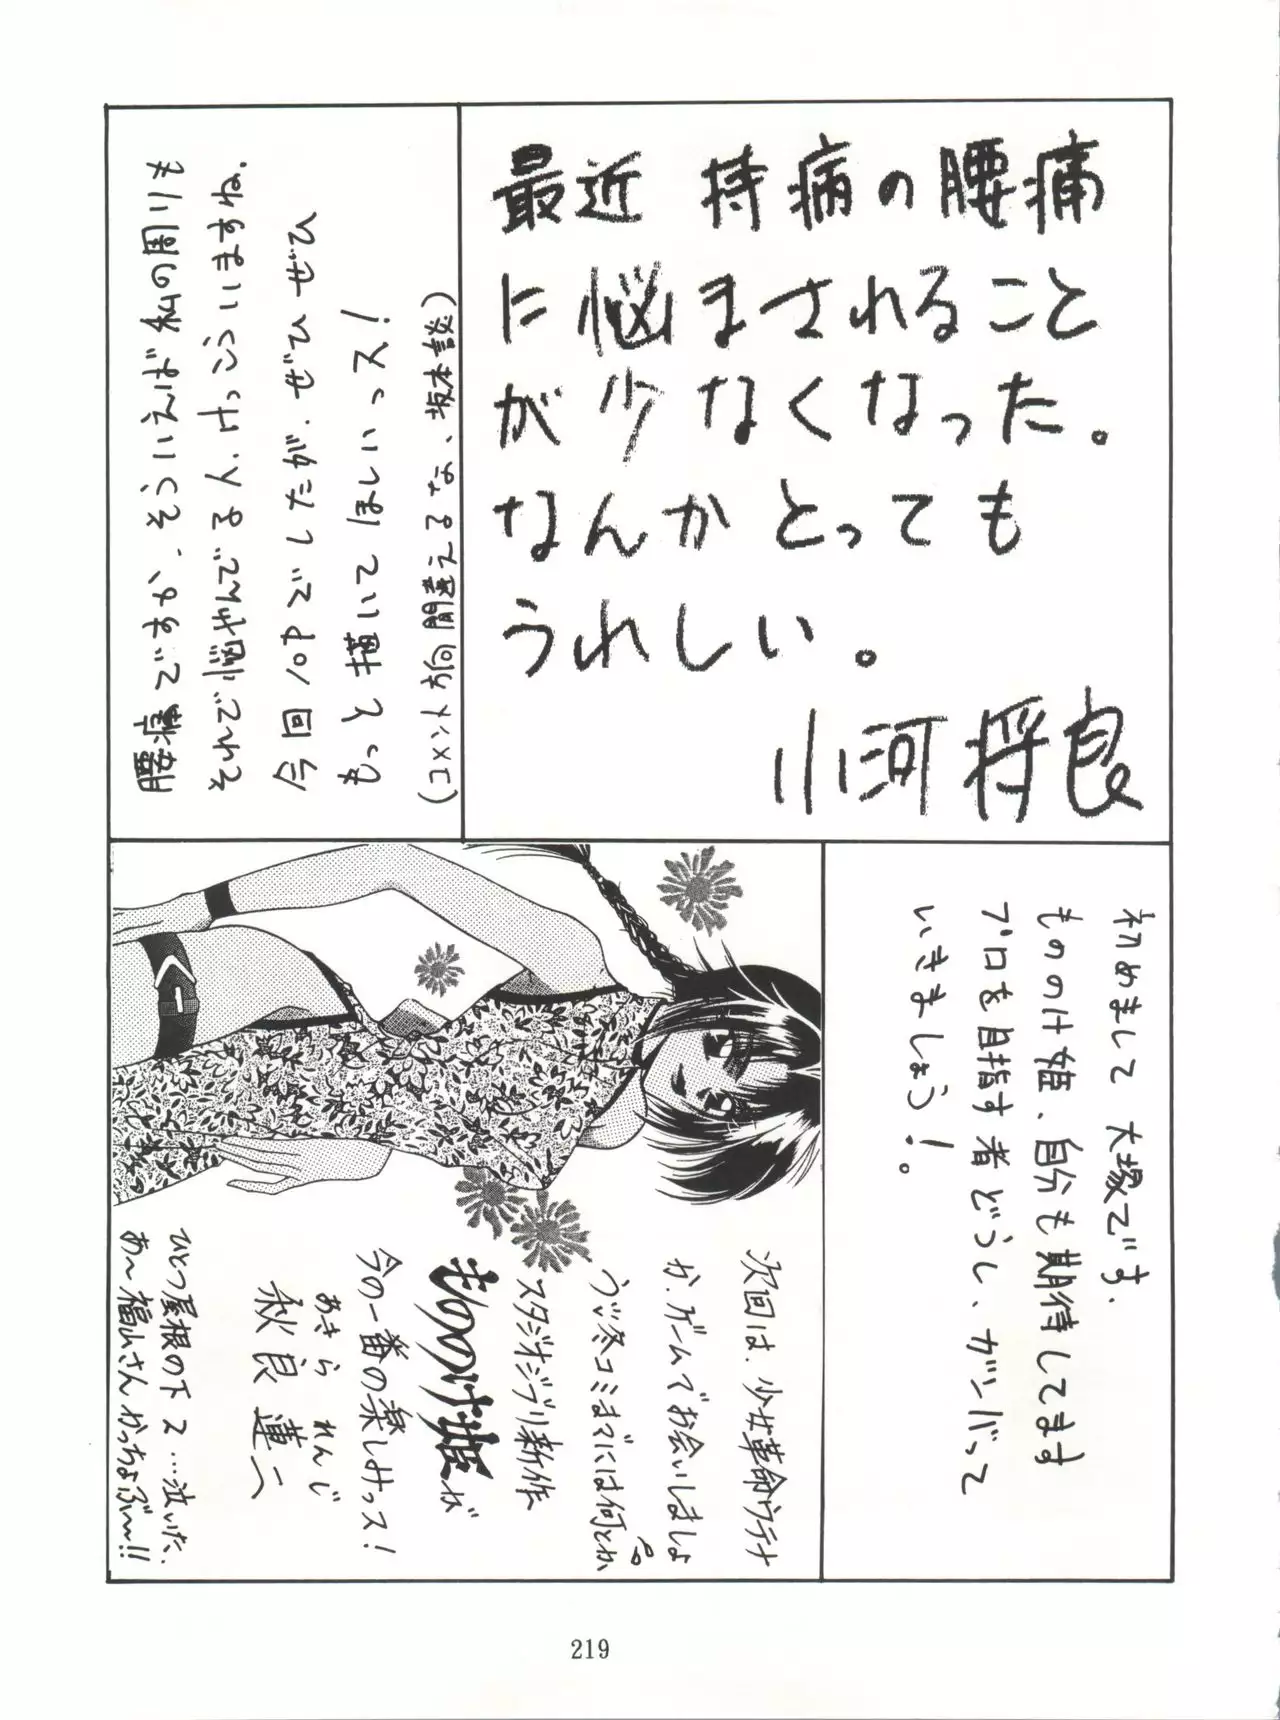 最近 持病の腰痛
に悩まされること
が少なくなった。
なんかとっても
うれしい。
小河将良
腰痛ですか、そういえば私の周りも
それで悩やんでる人、けっこういますね.
今回10Pでしたが、ぜひぜひ
もっと描いてほしいっス!
(コメント方向間違えるな、坂本談)
初めまして 大塚です.
もののけ姫、自分も期待してます
プロを目指す者どうし、ガンバって
いきましょう!。
次回は、少女革命ウテナ
か、ゲームでお会いしましょ
う♪冬コミまでには何とか
スタジオジブリ新作
もののけ姫が
今の一番の楽しみっス!
あきら れんじ
秋良 蓮二
ひとつ屋根の下2…泣いた.
あ〜福山さんかっちょぶ〜!!
219